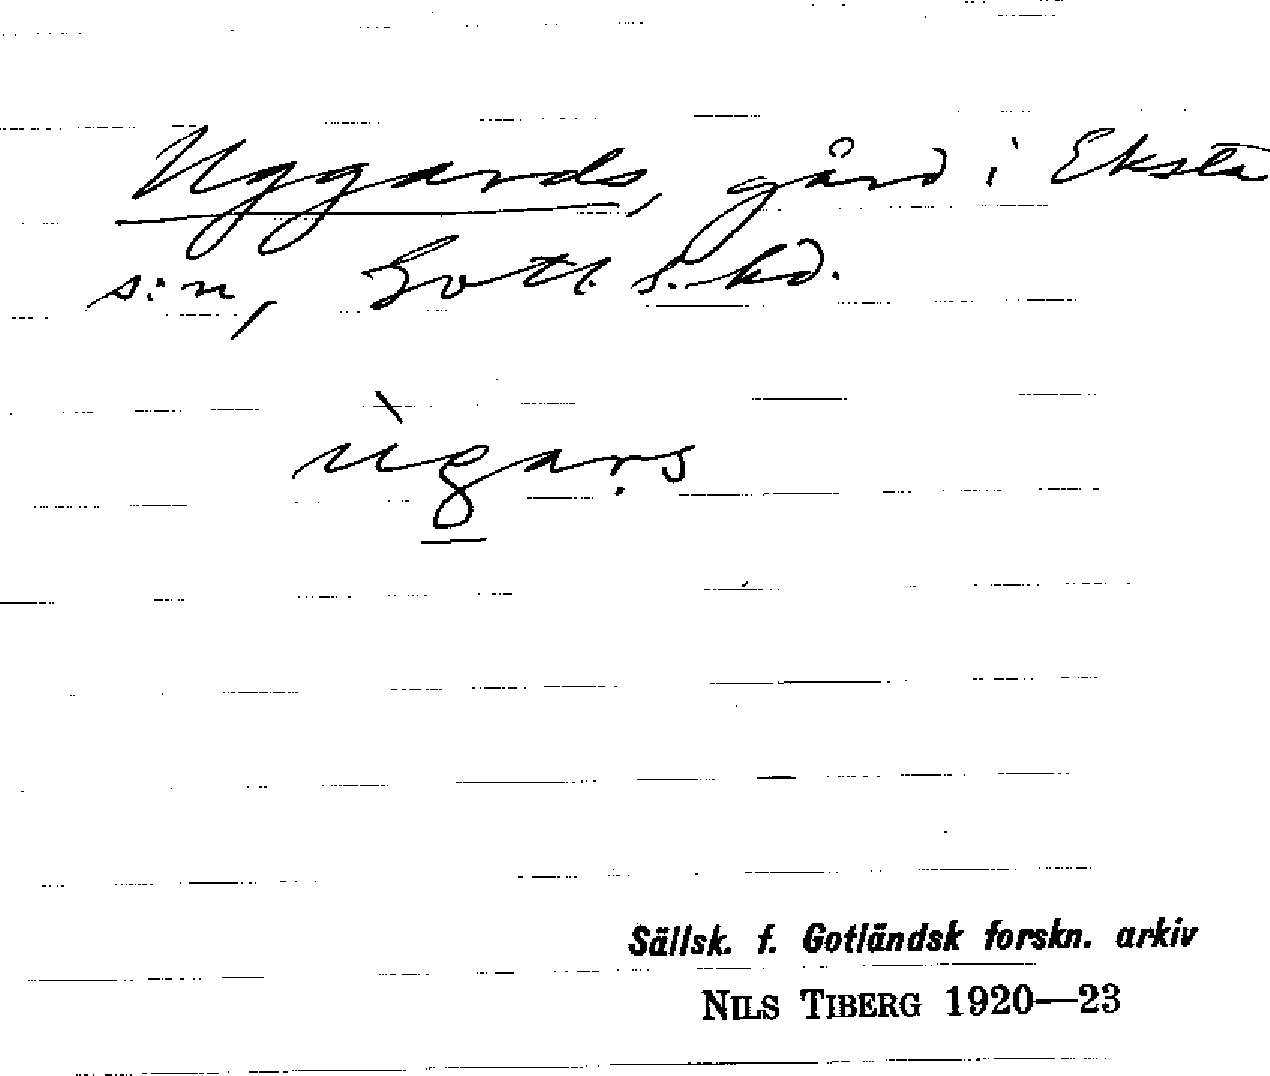 Uggards, gård i Eksta
s:n, Gotl. s. hd.
ùgaṛs
Sällsk. f. Gotländsk forskn. arkiv
NILS TIBERG 1920—23